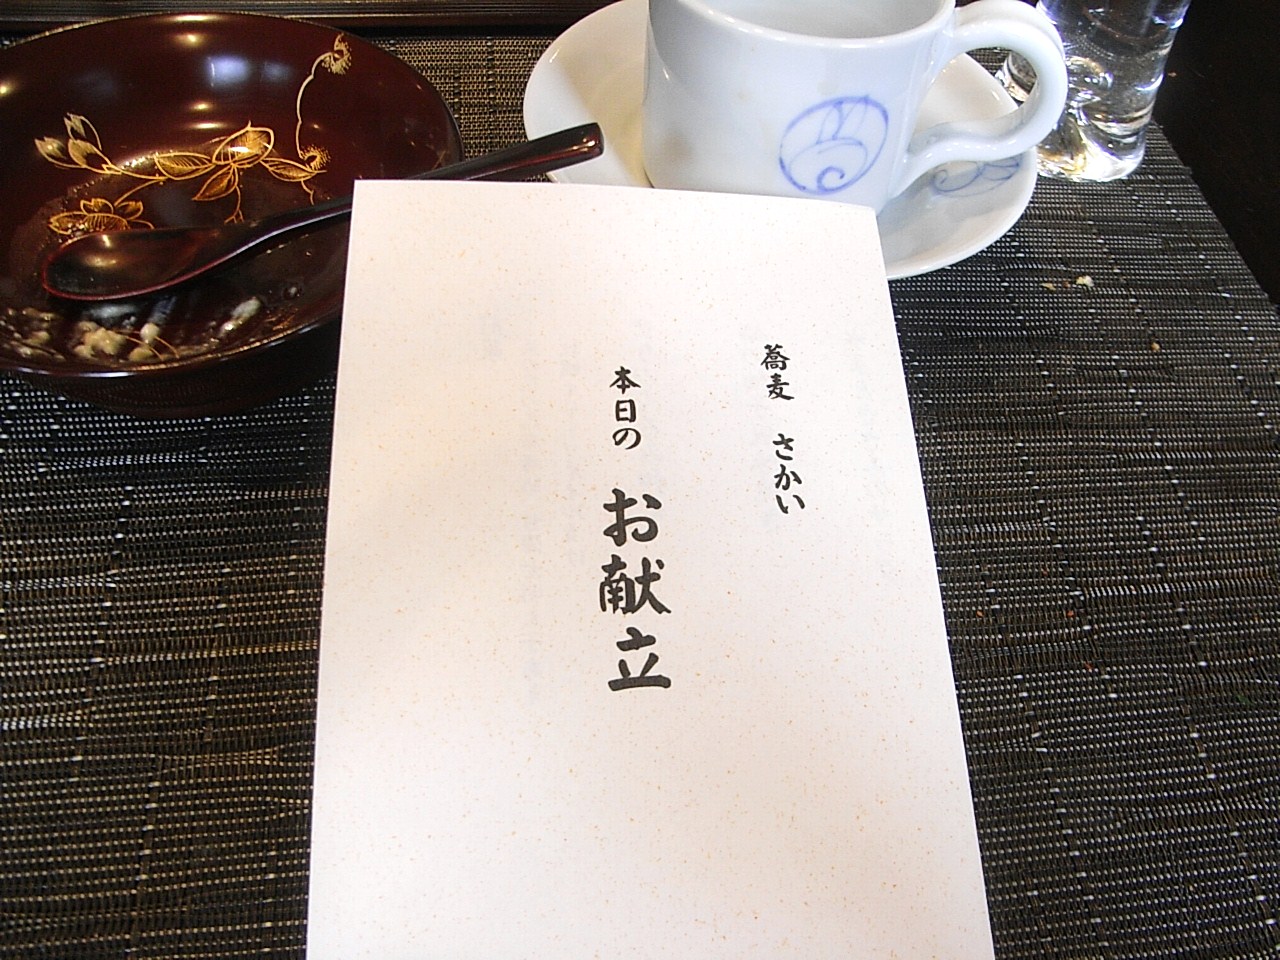 蕎麦 さかい
本日の お献立